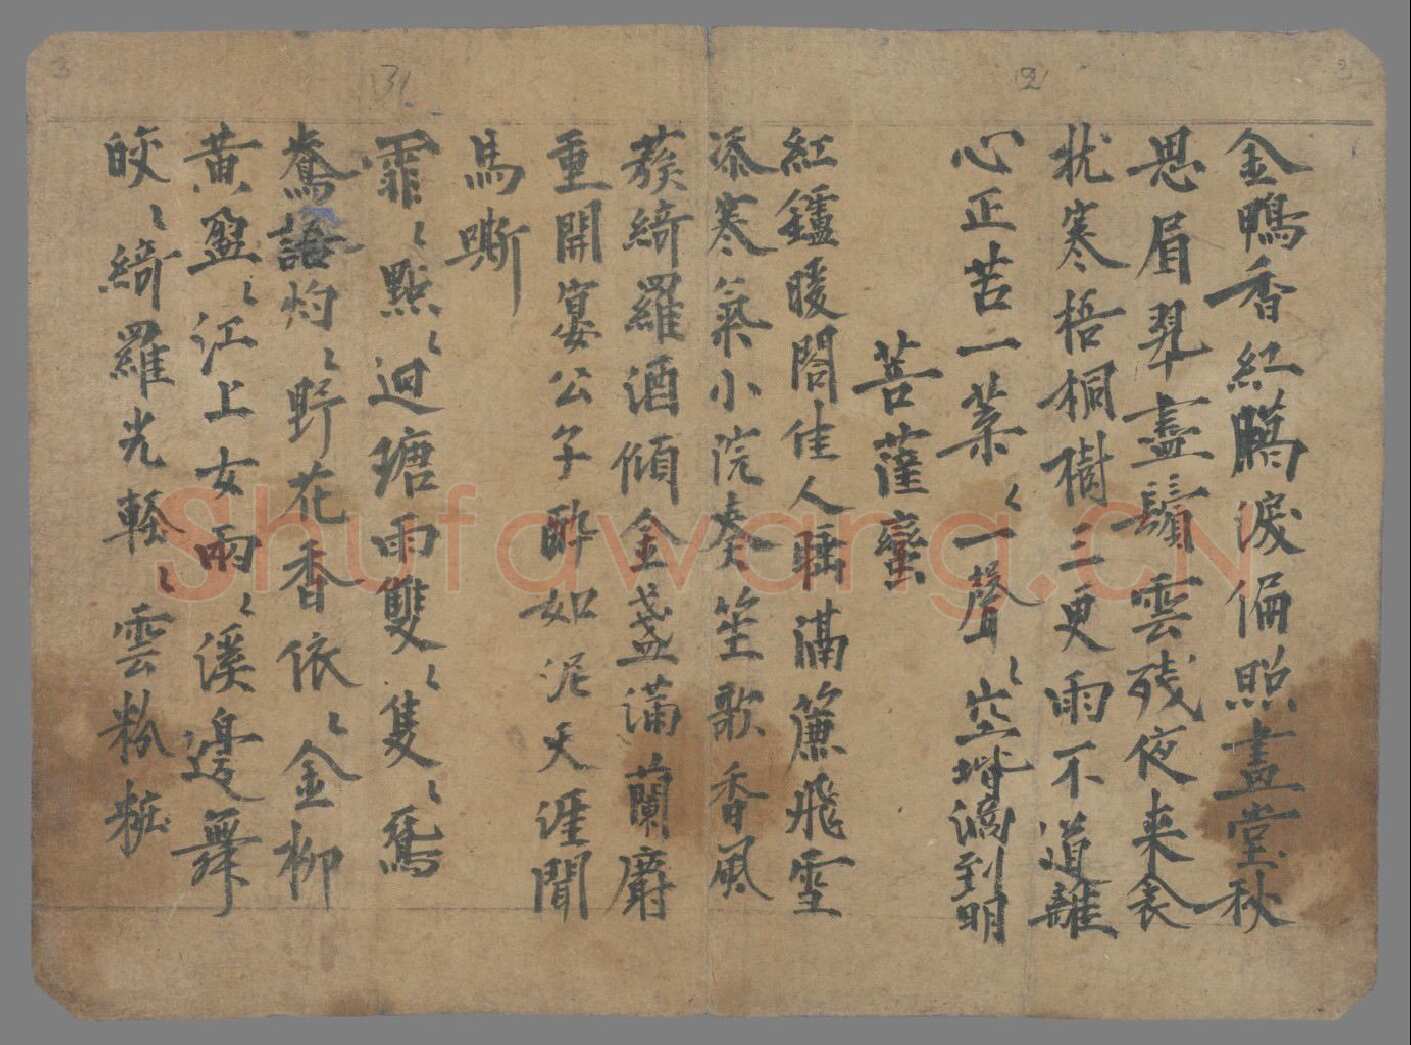 金鴨香紅蠟淚偏照畫堂秋
思眉翠盡鬢雲殘夜來衾
枕寒梧桐樹三更雨不道離
心正苦一葉〻一聲〻空堦滴到明
菩薩蠻
紅鑪暖閣佳人睡隔簾飛雪
添寒氣小院奏笙歌香風
蔟綺羅酒傾金盞滿蘭麝
重開宴公子醉如泥天涯聞
馬嘶
霏〻點〻迴塘雨雙〻隻〻鴛
鴦語灼〻野花香依〻金柳
黃盈〻江上女兩〻溪邊舞
皎〻綺羅光輕〻雲粉粧
Shufawang.CN
3
3
2
2